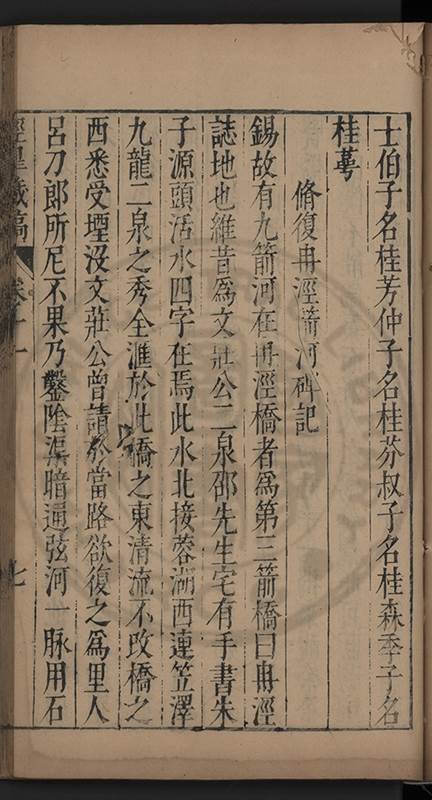 士伯子名桂芳仲子名桂芬叔子名桂森季子名
桂萼
脩復冉涇箭河碑記
錫故有九箭河在冉涇橋者為第三箭橋曰冉涇
誌地也維昔為文莊公二泉邵先生宅有手書朱
子源頭活水四字在焉此水北接蓉湖西連笠澤
九龍二泉之秀全滙於此橋之東清流不改橋之
西悉受堙沒文莊公曾請於當路欲復之為里人
呂刀郎所尼不果乃鑿陰渠暗通弦河一脉用石
涇臯藏稿
卷十一
七